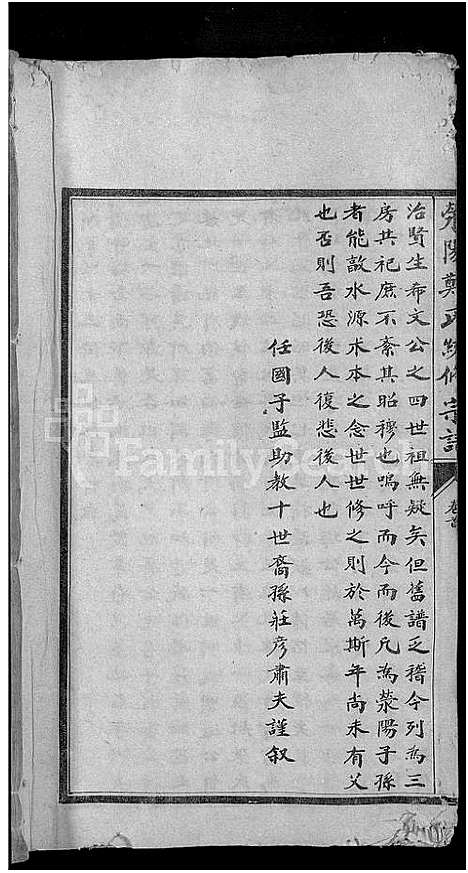 滎陽鄭氏統修宗譜
卷首
治賢生希文公之四世祖無疑矣但舊譜乏稽今列為三
房共祀庶不紊其昭穆也嗚呼而今而後凡為滎陽子孫
者能敦水源木本之念世世修之則於萬斯年尚未有艾
也否則吾恐後人復悲後人也
任國子監助教十世裔孫莊彥肅夫謹叙
FamilySearch